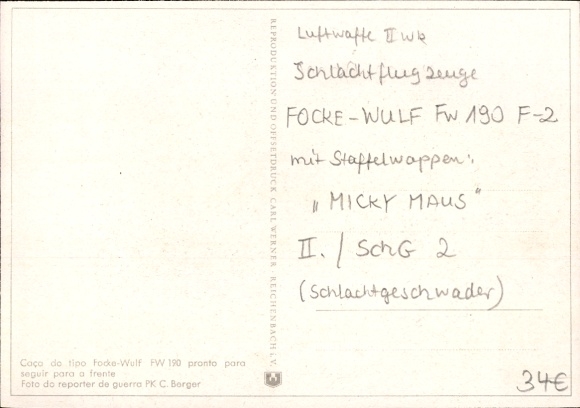 Luftwaffe II Wk
Schlachtflugzeuge
FOCKE-WULF FW 190 F-2
mit Staffelwappen:
„MICKY MAUS"
II. / SchG 2
(Schlachtgeschwader)
34€
REPRODUKTION UND OFFSETDRUCK CARL WERNER REICHENBACH I. V.
Caça do tipo Focke-Wulf FW 190 pronto para
seguir para a frente
Foto do reporter de guerra PK C. Berger